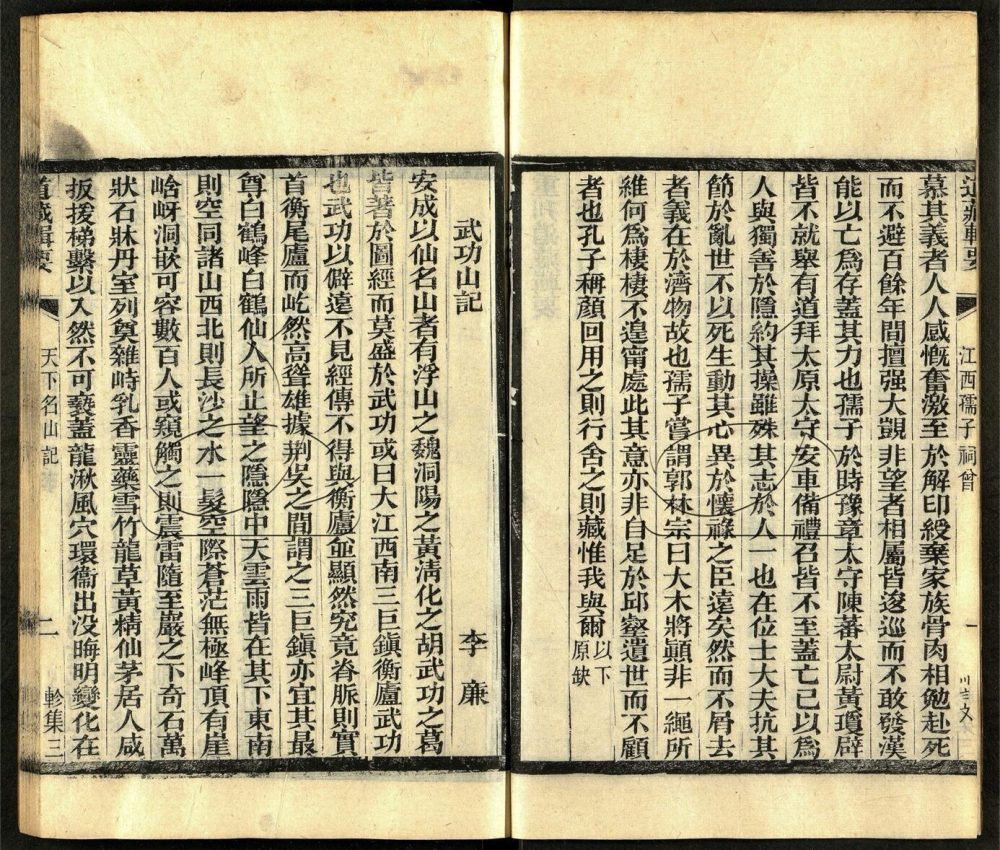 道藏輯要
江西孺子祠曾
一
慕其義者人人感慨奮激至於解印綬棄家族骨肉相勉赴死
而不避百餘年間擅强大覬非望者相屬皆逡巡而不敢發漢
能以亡爲存蓋其力也孺子於時豫章太守陳蕃太尉黃瓊辟
皆不就舉有道拜太原太守安車備禮召皆不至蓋亡已以爲
人與獨善於隱約其操雖殊其志於人一也在位士大夫抗其
節於亂世不以死生動其心異於懷祿之臣遠矣然而不屑去
者義在於濟物故也孺子嘗謂郭林宗曰大木將顛非一繩所
維何爲棲棲不遑甯處此其意亦非自足於邱壑遺世而不顧
者也孔子稱顏回用之則行舍之則藏惟我與爾以下原缺
武功山記
李廉
安成以仙名山者有浮山之魏洞陽之黃淸化之胡武功之葛
皆著於圖經而莫盛於武功或曰大江西南三巨鎭衡廬武功
也武功以僻遠不見經傳不得與衡廬並顯然究竟脊脈則實
首衡尾廬而屹然高聳雄據荆吳之間謂之三巨鎭亦宜其最
尊白鶴峰白鶴仙人所止望之隱隱中天雲雨皆在其下東南
則空同諸山西北則長沙之水一髮空際蒼茫無極峰頂有崖
崝岈洞嵌可容數百人或窺觸之則震雷隨至巖之下奇石萬
狀石牀丹室列奠雜峙乳香靈藥雪竹龍草黃精仙茅居人咸
扳援梯繫以入然不可褻蓋龍湫風穴環衞出没晦明變化在
道藏輯要
天下名山記
二
軫集三